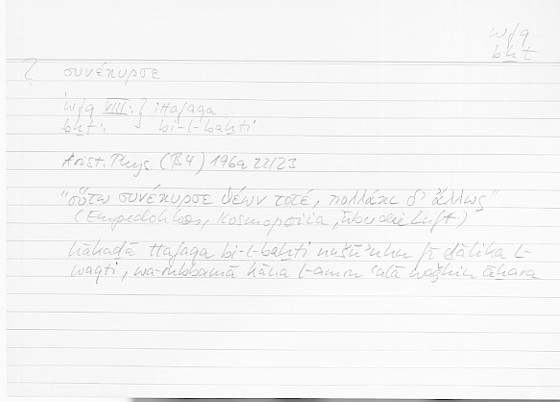 wfq
bḫt
? συνέκυρσε
wfq VIII: } ittafaqa
bḫt: bi-l-baḫti
Arist. Phys (B4) 196a 22/23
"οὕτω συνέκυρσε θέων τοτέ, πολλάκι δ' ἄλλως"
(Empedokles, Kosmopoiia, über die Luft)
hākaḏā ttafaqa bi-l-baḫti fī ḏālika l-
waqti, wa-rubbamā kāna l-amru ʿalā waǧhin āḫara